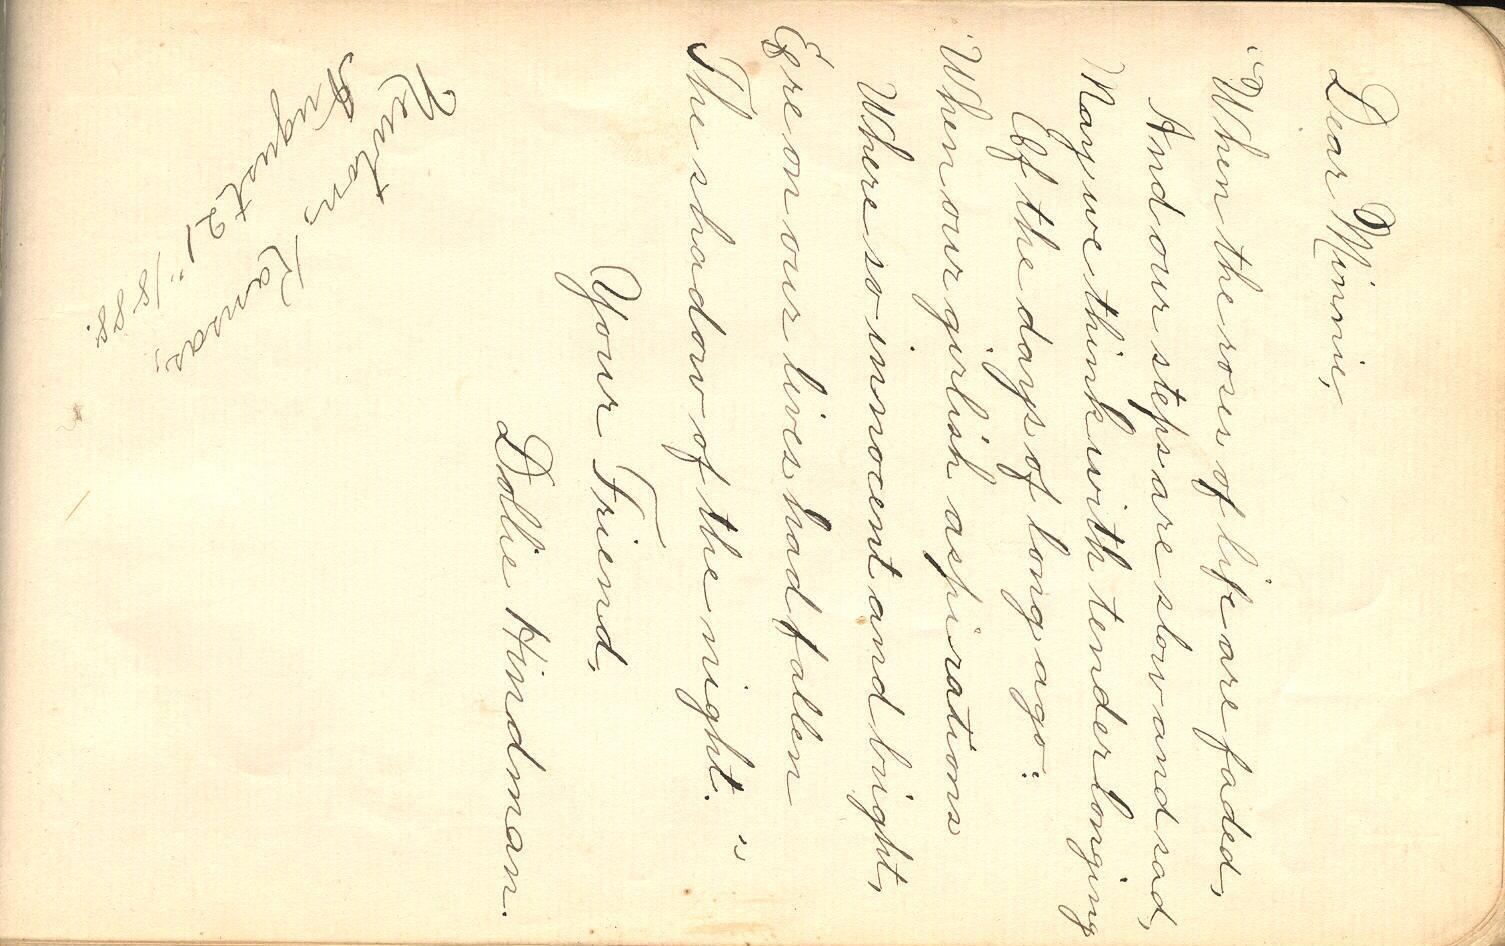 Dear Minnie,
"When the roses of life are faded,
And our steps are slow and sad,
May we think with tender longing
Of the days of long ago:
When our girlish aspirations
Where so innocent and bright,
Ere on our lives had fallen
The shadow of the night."
Your Friend,
Dollie Hindman.
Newton, Kansas,
August 21" 1888.